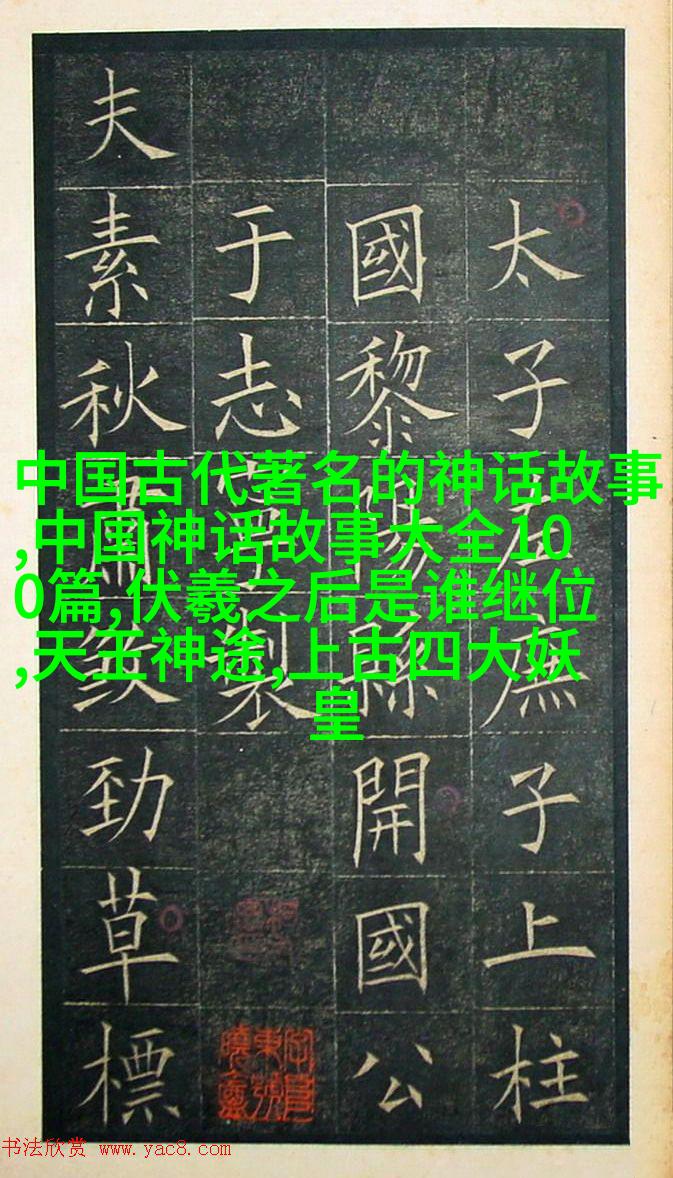 太子左庶子上柱
國黎陽縣開國公
于志寧製
夫素秋肅煞勁草標
中国古代著名的神话故事
,中国神话故事大全10
0篇,伏羲之后是谁继位
,天王神途,上古四大妖
皇
书法欣赏 www.yac8.com